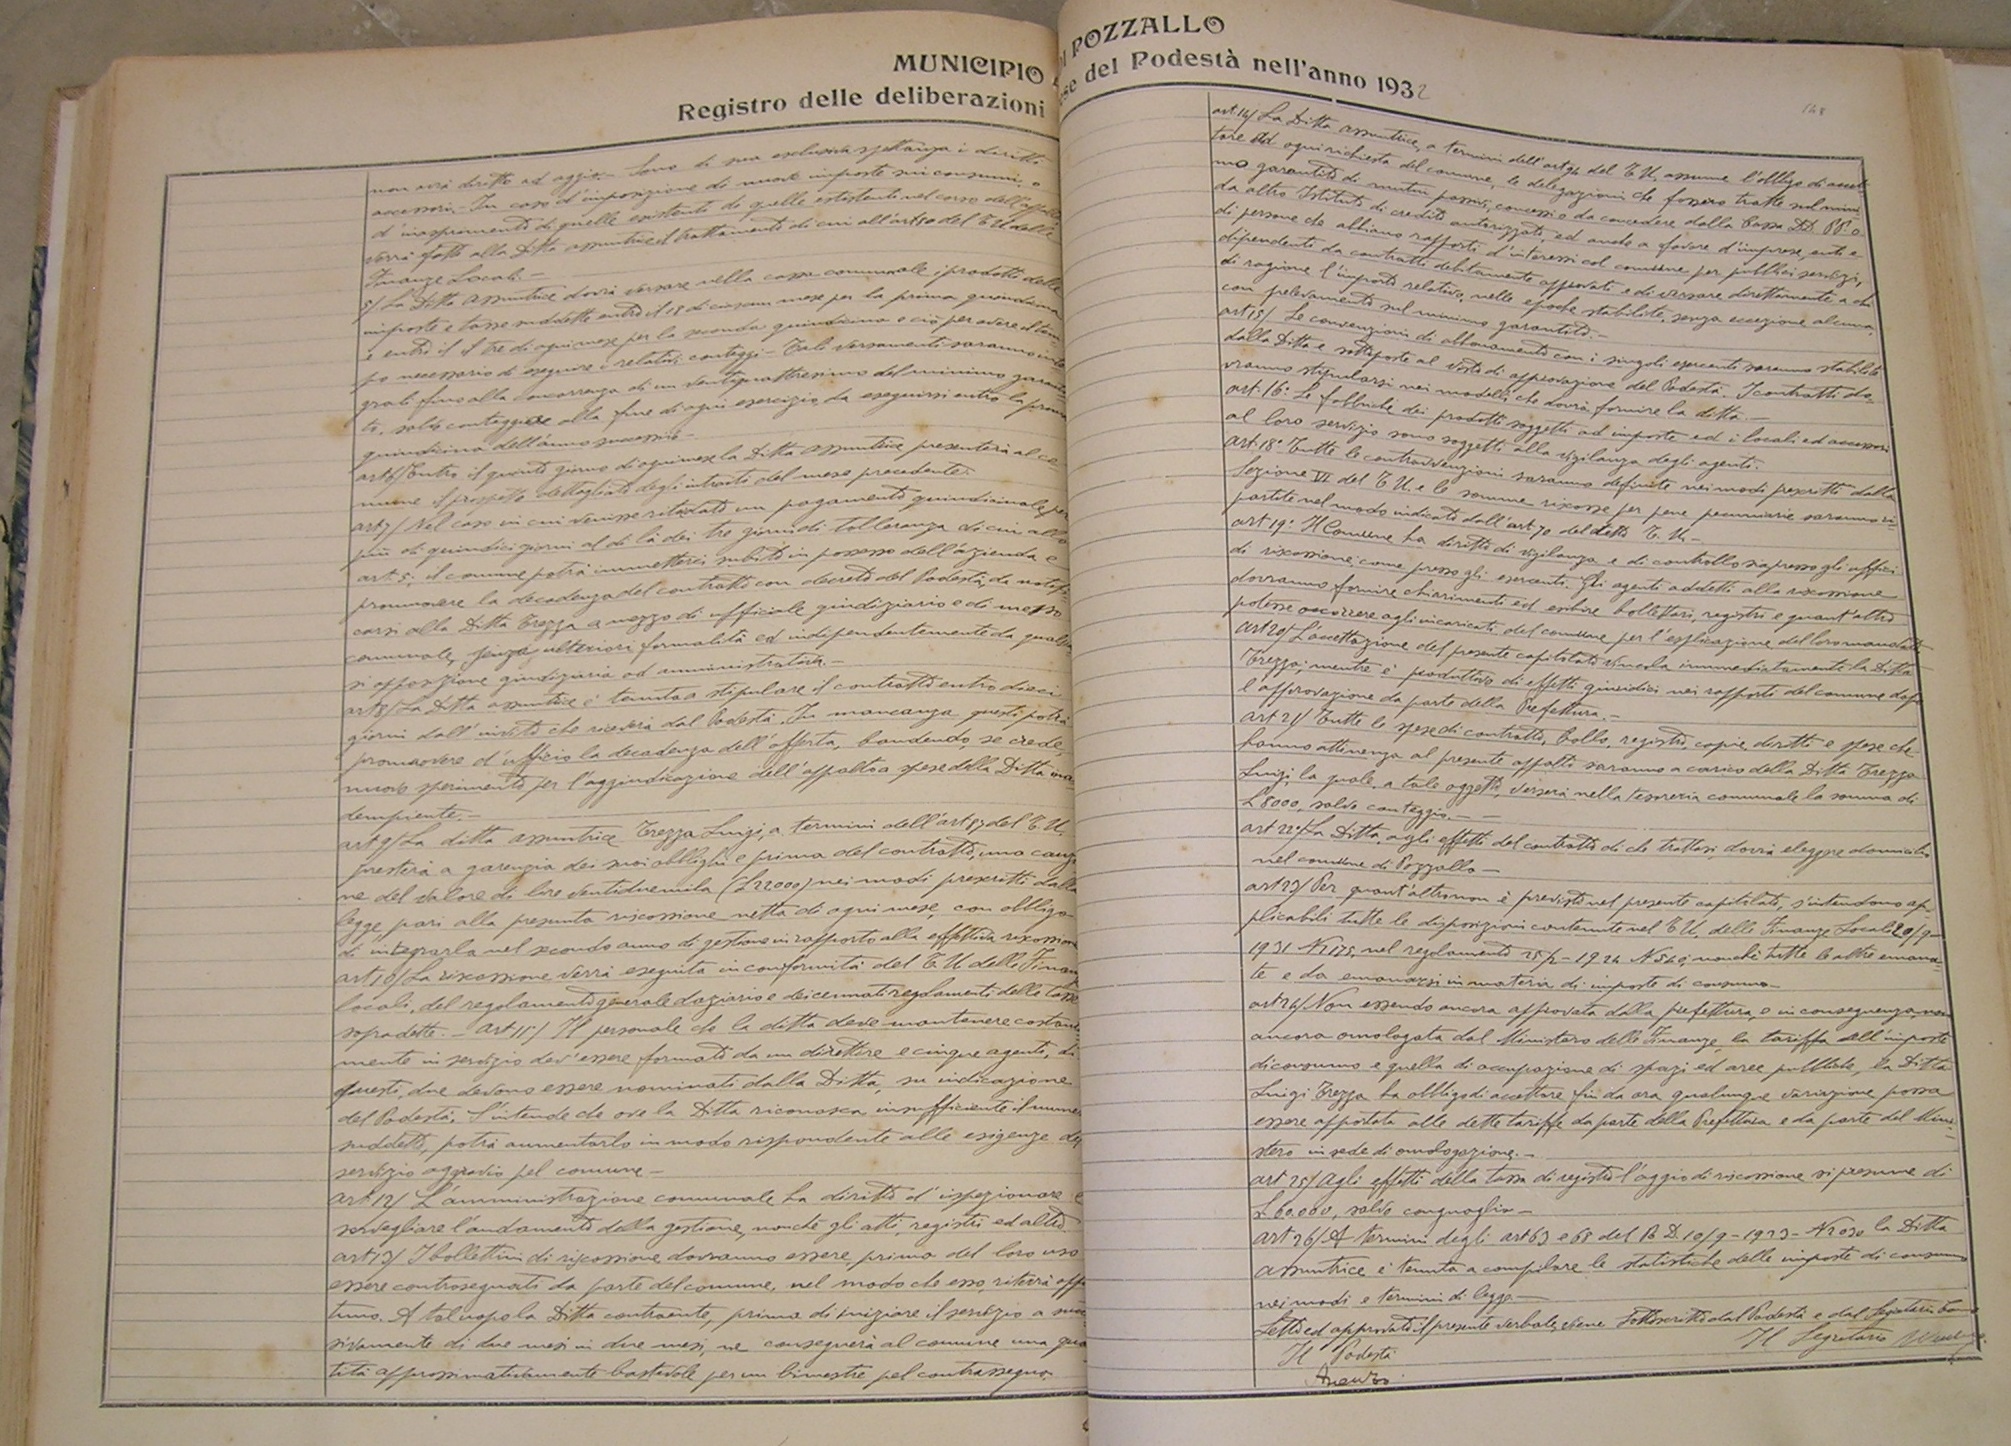 MUNICIPIO DI POZZALLO
Registro delle deliberazioni ese del Podestà nell'anno 1932
148
non avrà diritto ad aggio. Sono di sua esclusiva spettanza i diritti
accessori. In caso d'imposizione di nuove imposte sui consumi, o
d'inasprimento di quelle esistenti di quelle esistenti nel corso dell'appalto
verrà fatto alla Ditta assuntrice il trattamento di cui all'art 80 del T U delle
Finanze Locali.
5/ La Ditta assuntrice dovrà versare nella cassa comunale i prodotti delle
imposte e tasse suddette entro il 18 di ciascun mese per la prima quindicina
e entro il tre di ogni mese per la seconda quindicina e ciò per avere il tem-
po necessario di eseguire i relativi conteggi. Tali versamenti saranno
grati fino alla concorrenza di un ventiquattresimo del minimo garanti
to, salvo conteggiare alla fine di ogni esercizio da eseguirsi entro la prima
quindicina dell'anno successivo.
art 6/ Entro il quinto giorno di ogni mese la Ditta assuntrice presenterà al co-
mune il prospetto dettagliato degli introiti del mese precedente.
art 7/ Nel caso in cui venisse ritardato un pagamento quindicinale per
più di quindici giorni al di là dei tre giorni di tolleranza di cui allo
art. 5; il comune potrà immettersi subito in possesso dell'azienda e
promuovere la decadenza del contratto con decreto del Podestà, da notifi-
carsi alla Ditta Trezza a mezzo di ufficiale giudiziario e di messo
comunale, senza ulteriori formalità ed indipendentemente da qualsia
si opposizione giudiziaria od amministrativa.
art 8/ La Ditta assuntrice è tenuta a stipulare il contratto entro dieci
giorni dall'invito che riceverà dal Podestà. In mancanza questi potrà
promuovere d'ufficio la decadenza dell'offerta, bandendo, se crede,
nuovo sperimento per l'aggiudicazione dell'appalto a spese della Ditta ina
dempiente.
art 9/ La ditta assuntrice Trezza Luigi, a termini dell'art 87 del T. U.
presterà a garenzia dei suoi obblighi e prima del contratto, una cauzio
ne del valore di lire ventiduemila (L 22000) nei modi prescritti dalla
legge pari alla presunta riscossione netta di ogni mese, con obbligo
di integrarla nel secondo anno di gestione in rapporto alla effettiva riscossione
art 10/ La riscossione verrà eseguita in conformità del T. U. delle Finanze
locali, del regolamento generale daziario e dei cennati regolamenti delle tasse
sopradette. - art 11/ Il personale che la ditta deve mantenere costante
mente in servizio dev'essere formato da un direttore e cinque agenti, di
questi, due devono essere nominati dalla Ditta, su indicazione
del Podestà. S'intende che ove la Ditta riconosca insufficiente il numero
suddetto, potrà aumentarlo in modo rispondente alle esigenze del
servizio aggravio pel comune
art 12/ L'amministrazione comunale ha diritto d'ispezionare e
sorvegliare l'andamento della gestione, nonchè gli atti, registri ed altro
art 13/ I bollettini di riscossione dovranno essere, prima del loro uso
essere controsegnati da parte del comune, nel modo che esso riterrà oppor
tuno. A tal uopo la Ditta contraente, prima di iniziare il servizio a succes
sivamente di due mesi in due mesi, ne conseguerà al comune una quan
tità approssimativamente bastevole per un bimestre pel contrassegno
art. 14/ La Ditta assuntrice, a termini dell'art 94 del T. U. assume l'obbligo di accet-
tare ad ogni richiesta del comune, le delegazioni che fossero tratte sul mini-
mo garantito di mutui passivi, concessi o da concedere dalla Cassa DD. PP. o
da altro Istituto di credito autorizzato, ed anche a favore d'imprese, enti e
di persone che abbiano rapporti d'interessi col comune per pubblici servizi,
dipendenti da contratti debitamente approvati e di versare direttamente a chi
di ragione l'importo relativo, nelle epoche stabilite, senza eccezione alcuna,
con prelevamento sul minimo garantito.
art 15/ Le convenzioni di abbonamento con i singoli esercenti saranno stabilite
dalla Ditta e sottoposte al visto di approvazione del Podestà. I contratti do-
vranno stipularsi nei modelli che dovrà fornire la ditta.
art. 16° Le fabbriche dei prodotti soggetti ad imposte ed i locali ed accessori
al loro servizio sono soggetti alla vigilanza degli agenti.
art. 18° Tutte le contravvenzioni saranno definite nei modi prescritti dalla
Sezione VI del T U. e le somme riscosse per pene pecuniarie saranno ri-
partite nel modo indicato dall'art 70 del detto T. U.
art 19° Il Comune ha diritto di vigilanza e di controllo sia presso gli uffici
di riscossione come presso gli esercenti. Gli agenti addetti alla riscossione
dovranno fornire chiarimenti ed esibire bollettari, registri e quant'altro
potesse occorrere agli incaricati del comune per l'esplicazione del loro mandato
art 20/ L'accettazione del presente capitolato vincola immediatamente la Ditta
Trezza, mentre è produttivo di effetti giuridici nei rapporti del comune dopo
l'approvazione da parte della Prefettura.
art 21/ Tutte le spese di contratto, bollo, registro, copie, diritti e spese che
hanno attinenza al presente appalto saranno a carico della Ditta Trezza
Luigi, la quale, a tale oggetto, verserà nella tesoreria comunale la somma di
L 8000, salvo conteggio.
art 22°/ La Ditta, agli effetti del contratto di che trattasi, dovrà eleggere domicilio
nel comune di Pozzallo
art 23/ Per quant'altro non è previsto nel presente capitolato, s'intendono ap-
plicabili tutte le disposizioni contenute nel T U. delle Finanze Locali 20/9-
1931 N 1175, nel regolamento 25/2-1924 N 540; nonchè tutte le altre emana-
te e da emanarsi in materia di imposte di consumo
art 24/ Non essendo ancora approvata dalla prefettura, e in conseguenza, non
ancora omologata dal Ministero delle Finanze, la tariffa dell'imposte
di consumo e quella di occupazione di spazi ed aree pubbliche, la Ditta
Luigi Trezza ha obbligo di accettare fin da ora qualunque variazione possa
essere apportata alle dette tariffe da parte della Prefettura e da parte del Mini-
stero in sede di omologazione.
art 25/ Agli effetti della tassa di registro l'aggio di riscossione si presume di
L. 60.000, salvo conguaglio
art 26/ A termini degli art 63 e 68 del R D. 10/9-1923-N 2030 la Ditta
assuntrice è tenuta a compilare le statistiche delle imposte di consumo
nei modi e termini di legge
Letto ed approvato il presente verbale, viene sottoscritto dal Podestà e dal Segretario
Il Podestà
Il Segretario